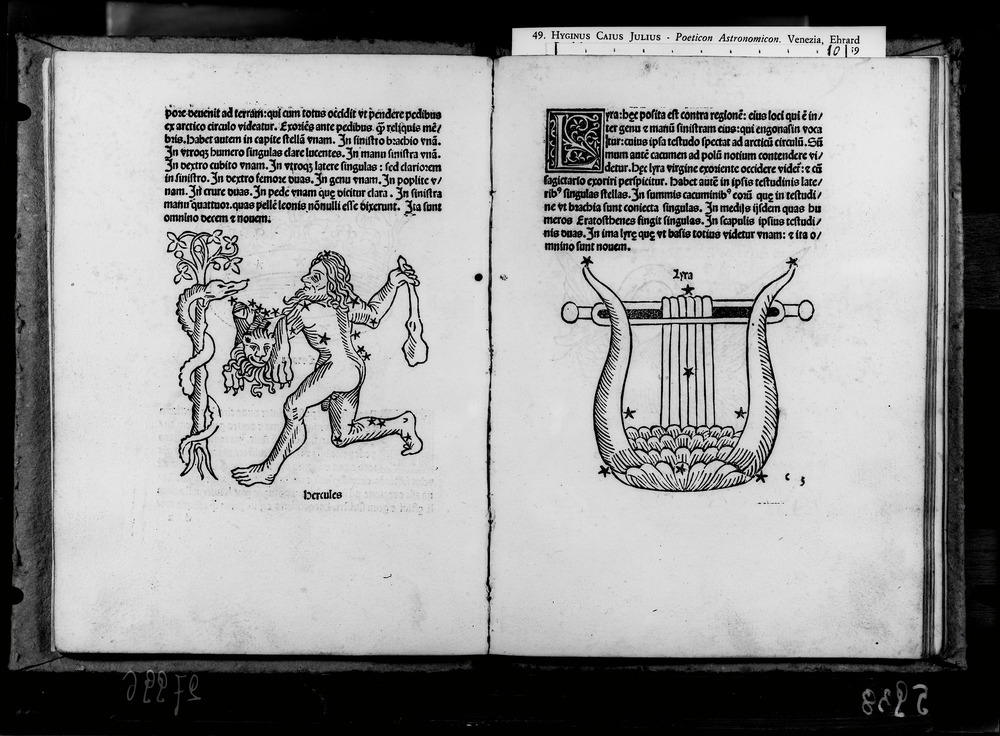 49. HYGINUS CAIUS JULIUS - Poeticon Astronomicon. Venezia, Ehrard
10 19
pore deuenit ad terram: qui cum totus occidit vt pendere pedibus
ex arctico circulo videatur. Exoriēs ante pedibus q̄ reliquis mē/
bris. Habet autem in capite stellā vnam. In sinistro brachio vnā.
In vtroqȝ humero singulas clare lucentes. In manu sinistra vnā.
In dextro cubito vnam. In vtroqȝ latere singulas: sed clariorem
in sinistro. In dextro femore duas. In genu vnam. In poplite v/
nam. In crure duas. In pede vnam que dicitur clara. In sinistra
manu quattuor. quas pellē leonis nōnulli esse dixerunt. Ita sunt
omnino decem et nouem.
Hercules
Lyra: hęc posita est contra regionē: eius loci qui ē in/
ter genu et manū sinistram eius: qui engonasin voca
tur: cuius ipsa testudo spectat ad arcticū circulū. Sū
mum autē cacumen ad polū notium contendere vi/
detur. Hęc lyra virgine exoriente occidere videt᷑: et cū
sagictario exoriri perspicitur. Habet autē in ipsis testudinis late/
ribꝰ singulas stellas. In summis cacuminibꝰ eorū quę in testudi/
ne vt brachia sunt coniecta singulas. In medijs ijsdem quas hu
meros Eratosthenes fingit singulas. In scapulis ipsius testudi/
nis duas. In ima lyrę quę vt basis totius videtur vnam: et ita o/
mnino sunt nouem.
Lyra
c 3
27996
5938